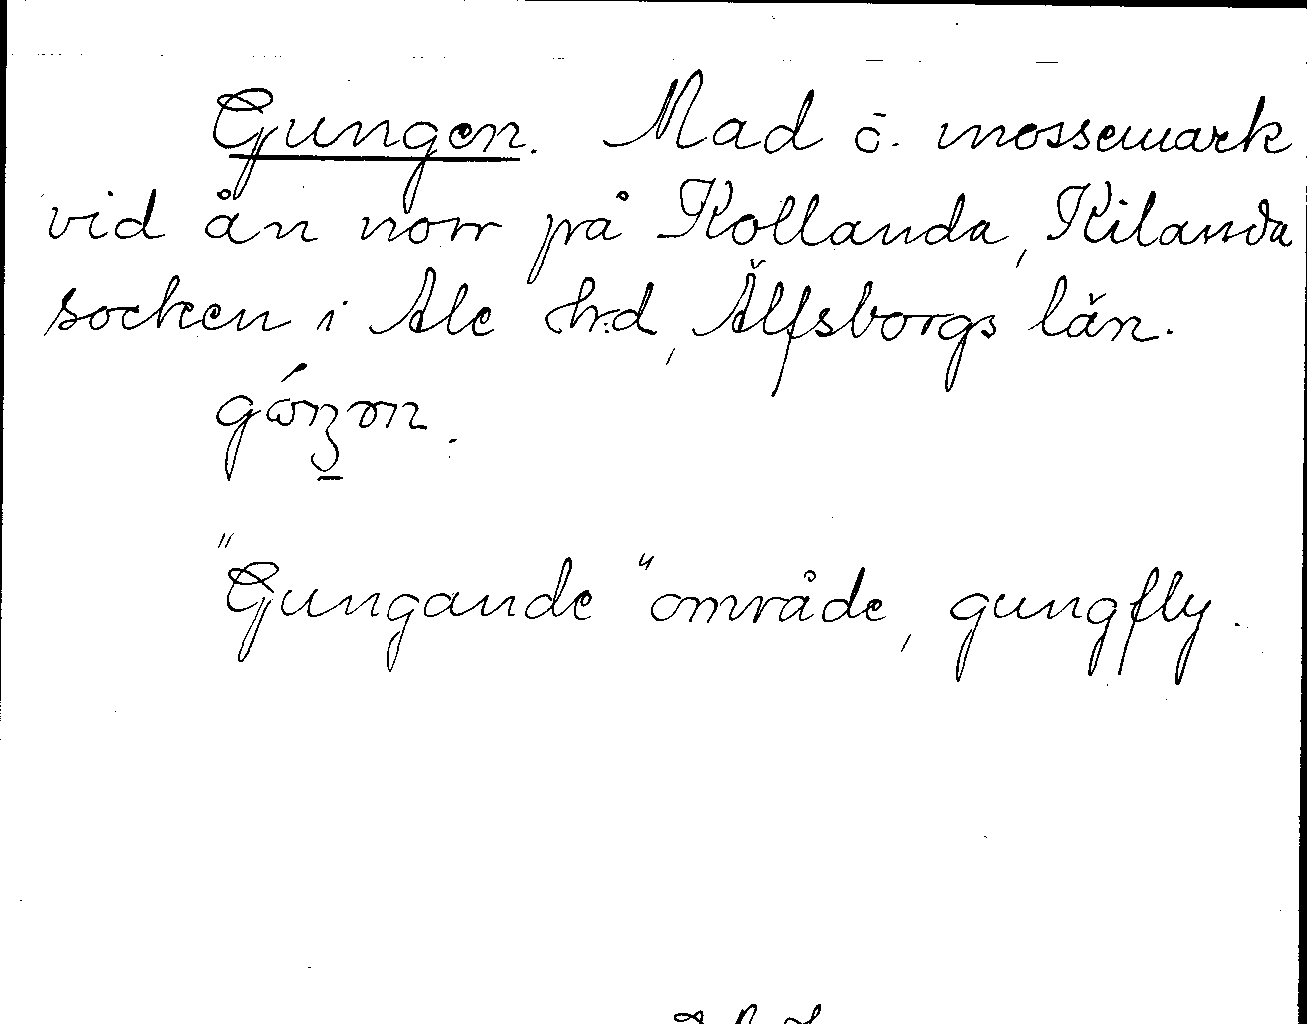 Gungen. Mad o. mossemark
vid ån norr på Kollanda, Kilanda
socken i Ale hrd, Älfsborgs län.
"Gungande" område, gungfly.